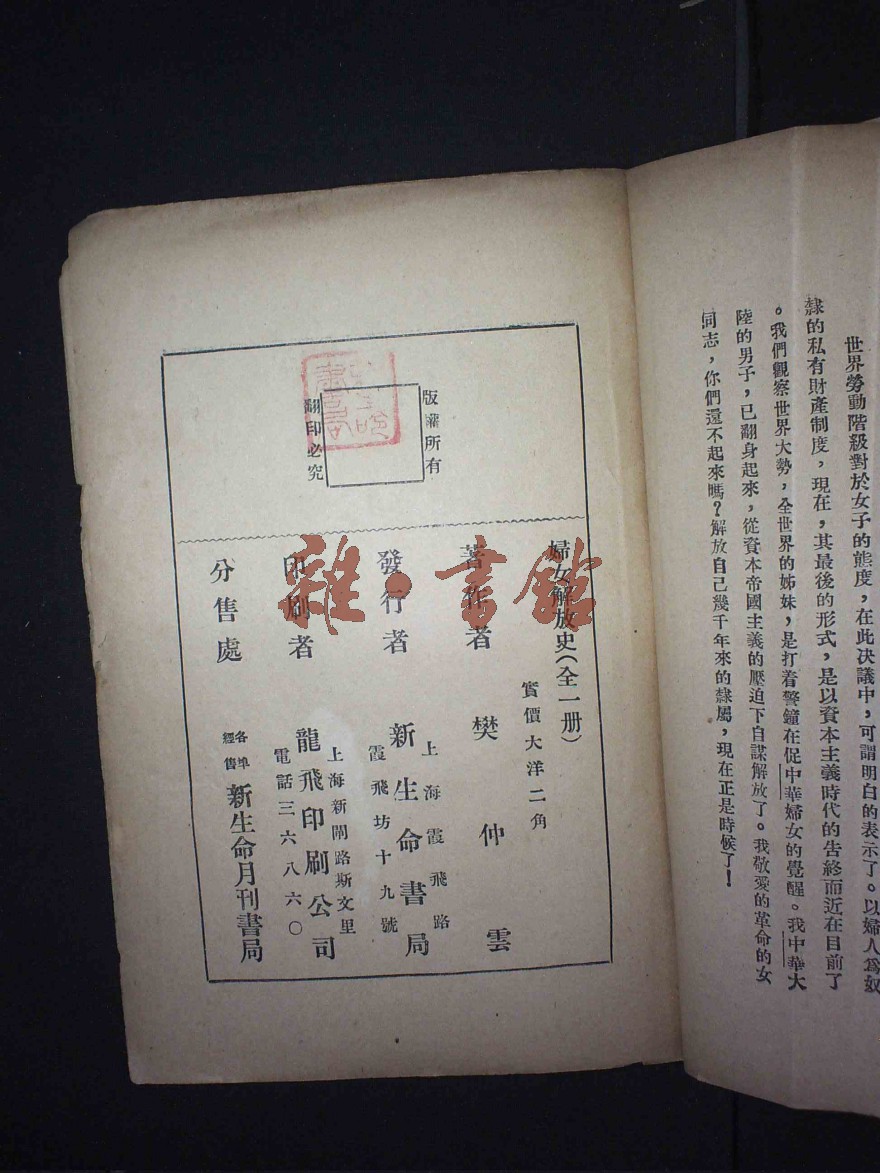 世界勞動階級對於女子的態度，在此决議中，可謂明白的表示了。以婦人爲奴
隸的私有財產制度，現在，其最後的形式，是以資本主義時代的告終而近在目前了
。我們觀察世界大勢，全世界的姊妹，是打着警鐘在促中華婦女的覺醒。我中華大
陸的男子，已翻身起來，從資本帝國主義的壓迫下自謀解放了。我敬愛的革命的女
同志，你們還不起來嗎？解放自己幾千年來的隸屬，現在正是時候了！
版權所有
翻印必究
婦女解放史（全一册）
實價大洋二角
著作者 樊仲雲
上海霞飛路
發行者 新生命書局
霞飛坊十九號
上海新閘路斯文里
印刷者 龍飛印刷公司
電話三六八六〇
分售處 各埠經售 新生命月刊書局
雜·書館